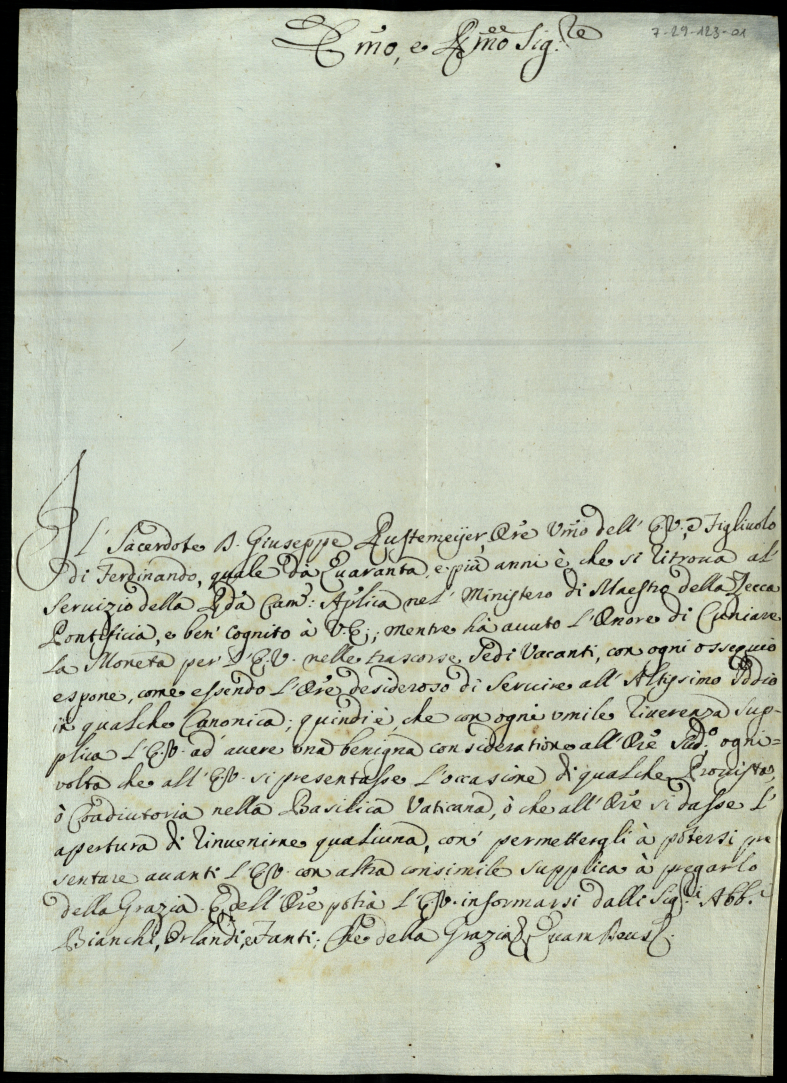 7-29-123-01
Emo, e Rmo Sig.re
Il' Sacerdote D. Giuseppe Rustemeyer, Ore Vmo dell' E.V., e Figliuolo
di Ferdinando, quale da Quaranta, e più anni è che si ritrova al'
Servizio della Rda Cam.a Aplica nel' Ministero di Maestro della Zecca
Pontificia, e ben' cognito à V.E.; mentre hà avuto L'Onore di Cuniare
La Moneta per L'E.V. nelle trascorse Sedi Vacanti, con ogni ossequio
espone, come essendo L'Ore desideroso di Servire all' Altissimo Iddio
in qualche Canonica; quindi è, che con ogni umile riverenza sup-
plica L'E.V. ad' avere una benigna consideratione all' Ore Sud.o, ogni=
volta che all' E.V. si presentasse L'occasione di qualche Provista,
ò Coadiutoria nella Basilica Vaticana, ò che all' Ore si dasse L'
apertura di rinvenirne qualiuna, con' permettergli à potersi pre
sentare avanti L'E.V. con altra consimile supplica à pregarlo
della Grazia. E dell' Ore potrà L'E.V. informarsi dalli Sig.ri Abb.i
Bianchi, Orlandi, e Fanti; Che della Grazia &. Quam Deus &.